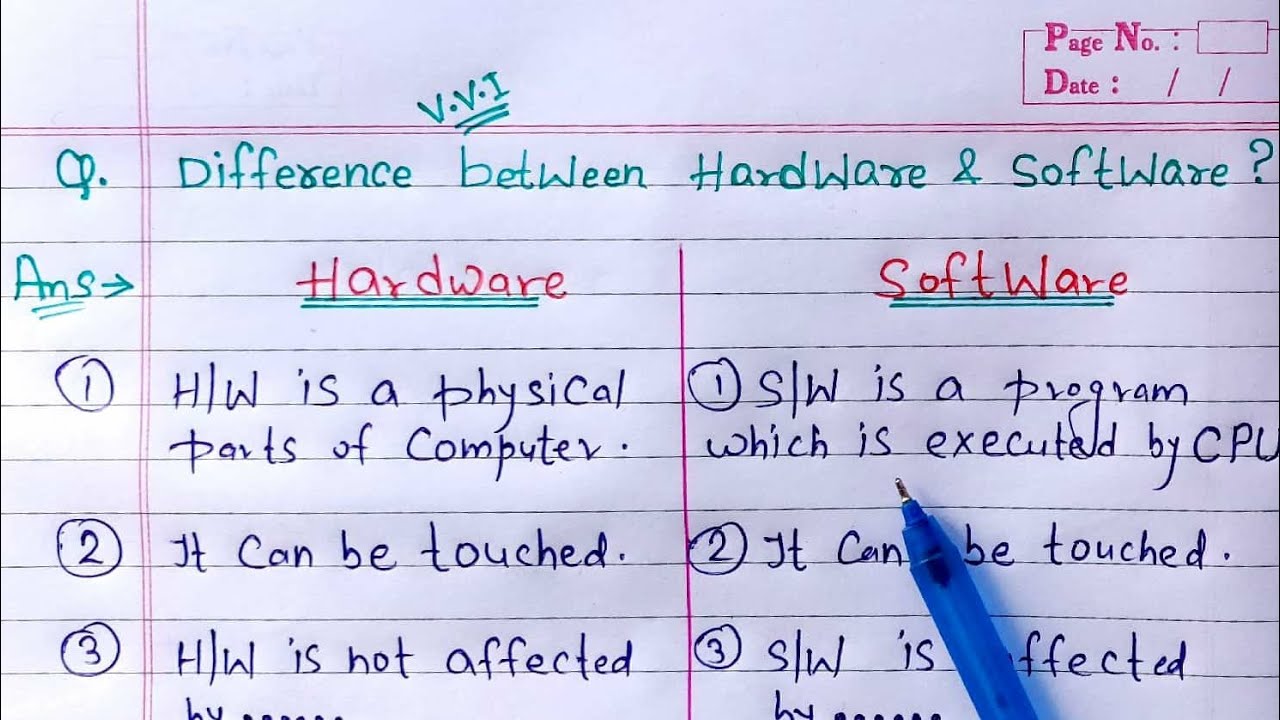 Page No. :
Date : / /
V.V.I
Q. Difference between Hardware & Software ?
Ans→ Hardware Software
① H/W is a physical
parts of Computer.
① S/W is a program
which is executed by CPU
② It Can be touched.
② It Can be touched.
③ H/W is not affected
by ......
③ S/W is affected
by ......